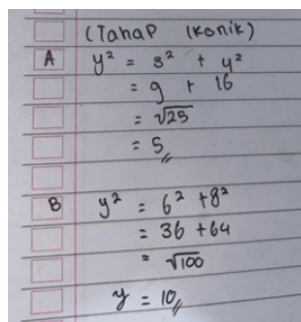 (Tahap Ikonik)
A y² = 3² + 4²
= 9 + 16
= √25
= 5
B y² = 6² + 8²
= 36 + 64
= √100
y = 10